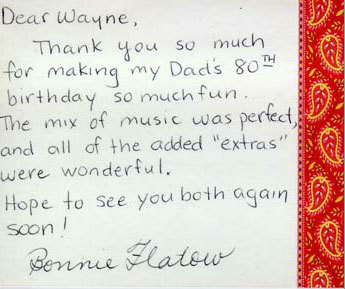 Dear Wayne,
Thank you so much
for making my Dad's 80TH
birthday so much fun.
The mix of music was perfect,
and all of the added "extras"
were wonderful.
Hope to see you both again
soon!
Bonnie Flatow